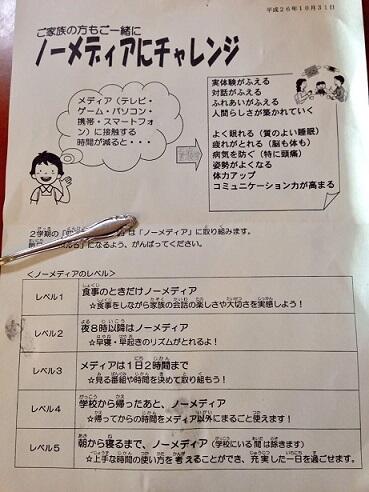 平成26年10月31日
ご家族の方もご一緒に
ノーメディアにチャレンジ
メディア（テレビ・
ゲーム・パソコン・
携帯・スマートフォ
ン）に接触する
時間が減ると・・・
実体験がふえる
対話がふえる
ふれあいがふえる
人間らしさが築かれていく
よく眠れる（質のよい睡眠）
疲れがとれる（脳も体も）
病気を防ぐ（特に頭痛）
姿勢がよくなる
体力アップ
コミュニケーション力が高まる
2学期の
は「ノーメディア」に取り組みます。
になるよう、がんばってください。
＜ノーメディアのレベル＞
レベル1 食事のときだけノーメディア
☆食事をしながら家族の会話の楽しさや大切さを実感しよう！
レベル2 夜8時以降はノーメディア
☆早寝・早起きのリズムがとれるよ！
レベル3 メディアは1日2時間まで
☆見る番組や時間を決めて取り組もう！
レベル4 学校から帰ったあと、ノーメディア
☆帰ってからの時間をメディア以外にまるごと使えます！
レベル5 朝から寝るまで、ノーメディア（学校にいる間は除きます）
☆上手な時間の使い方を考えることができ、充実した一日を過ごせます。